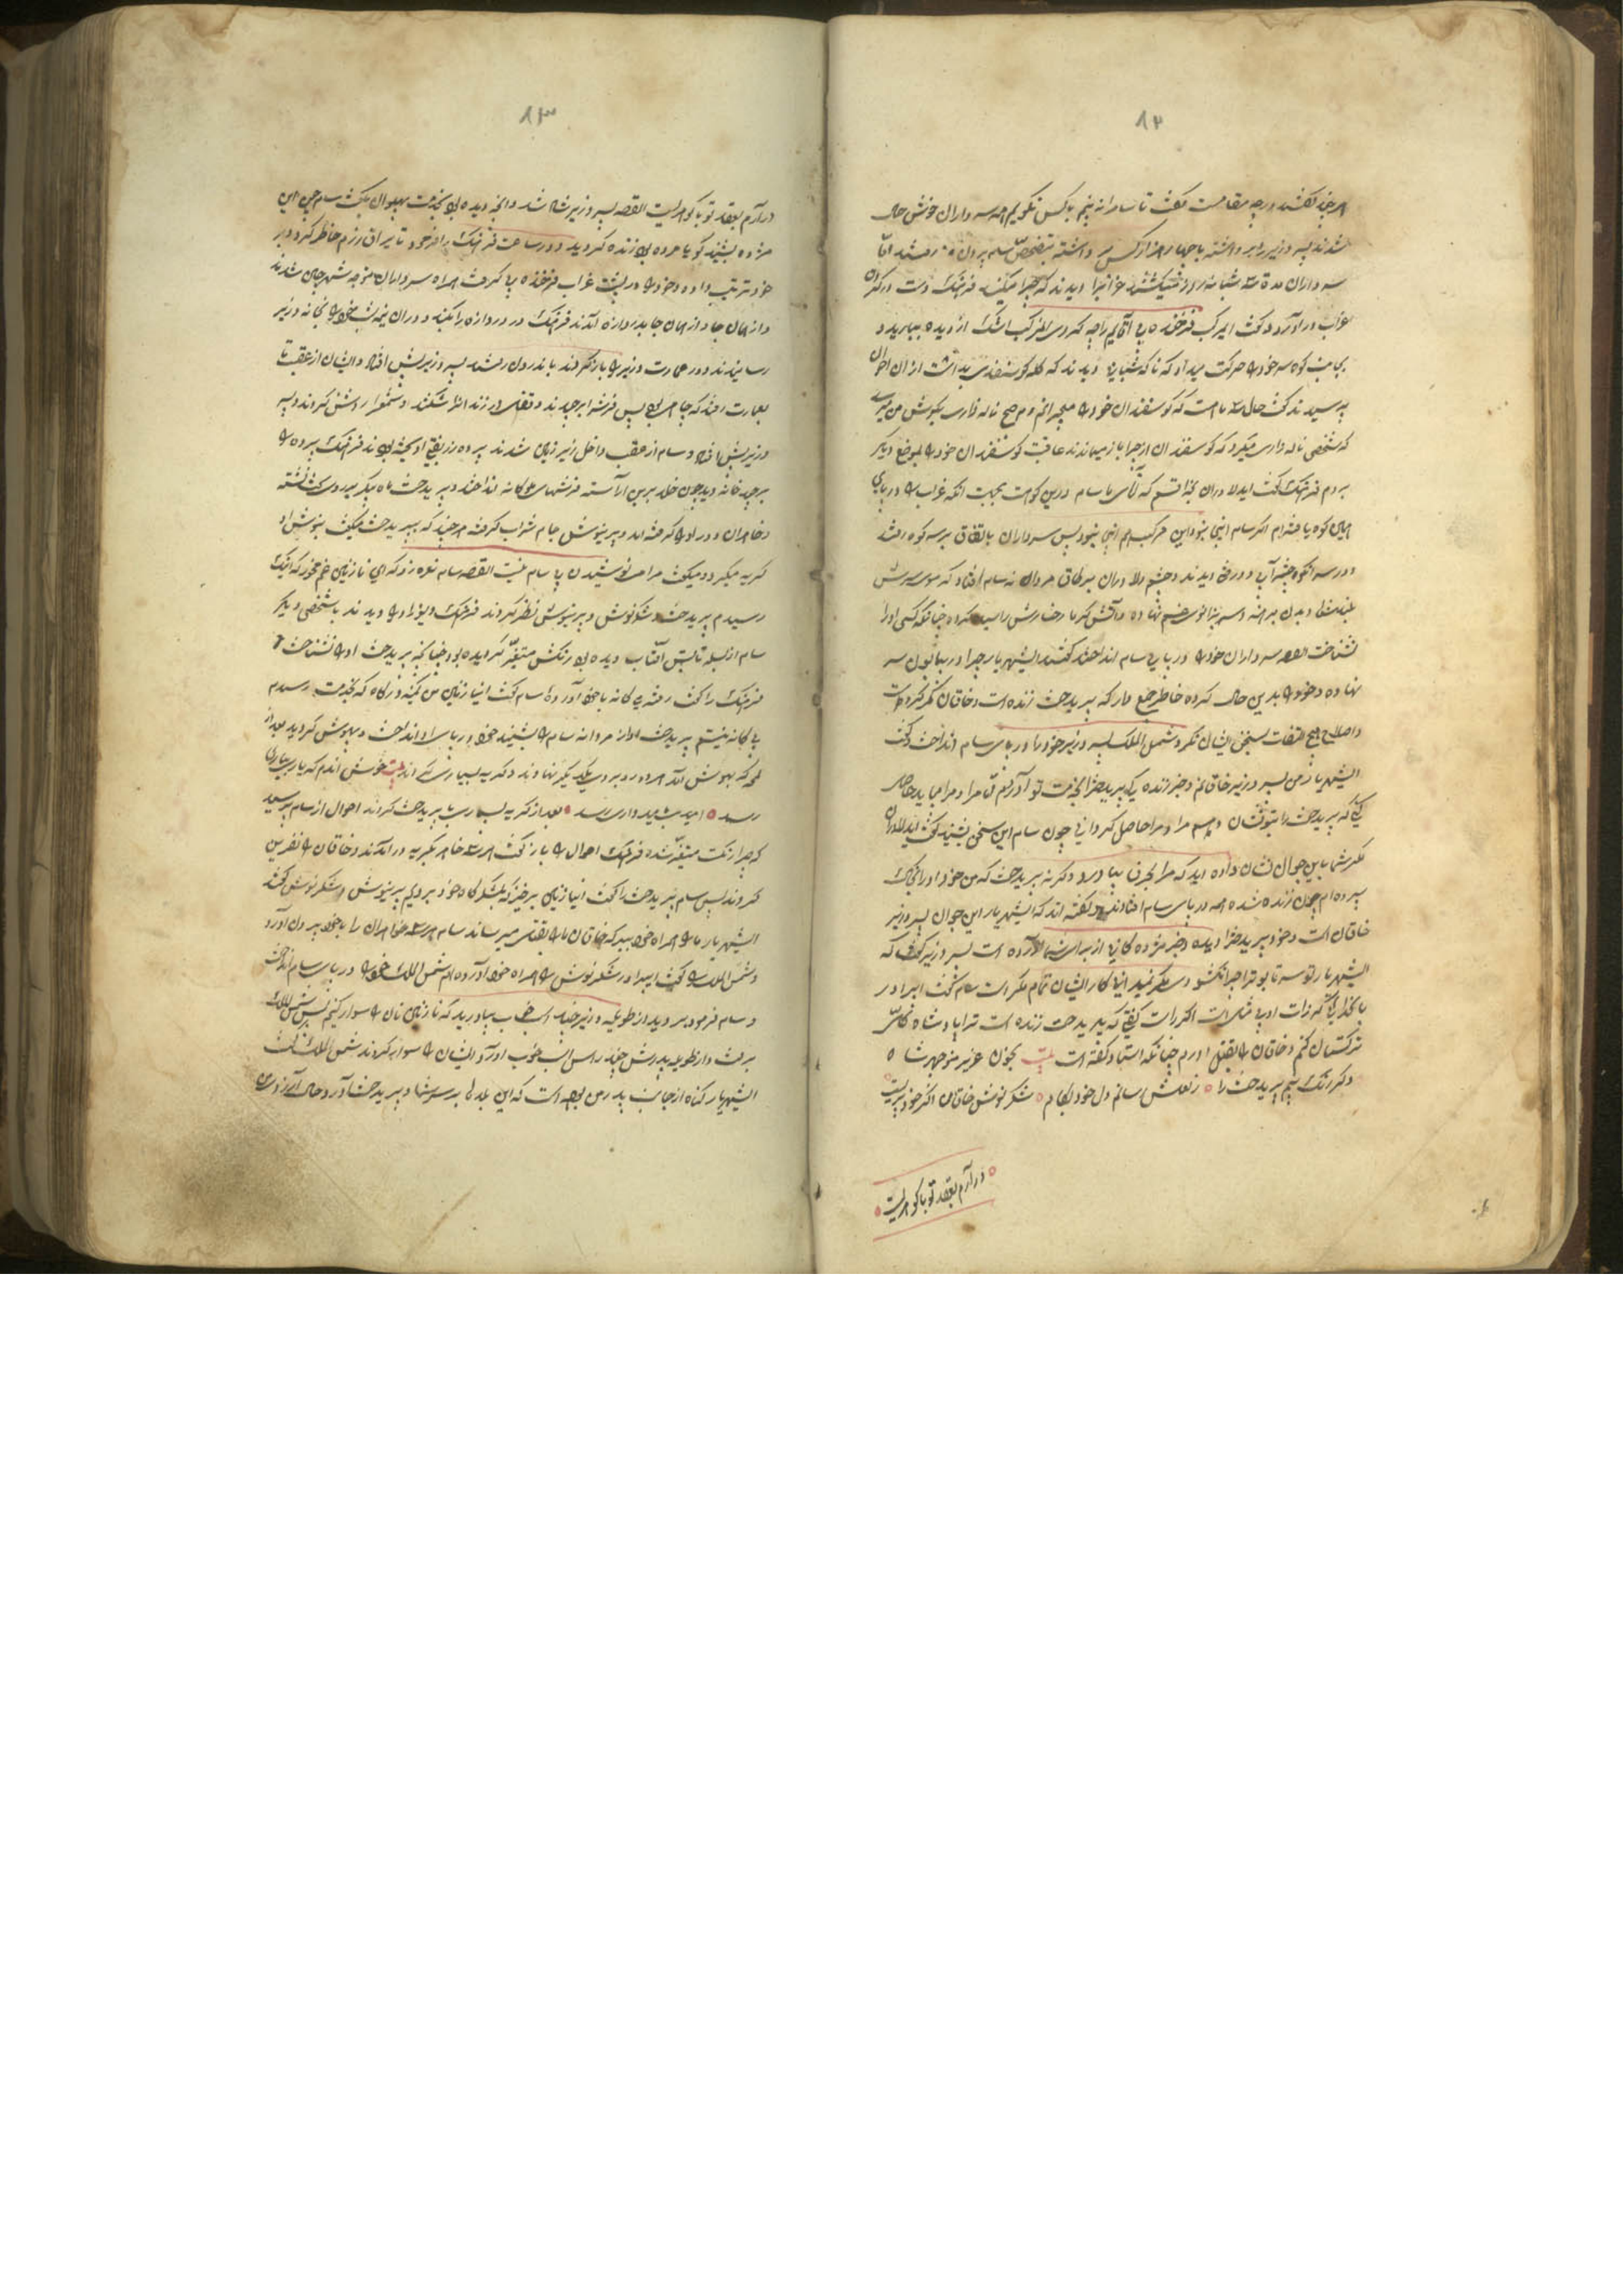 ۸۲
هر چند گفتند در چه مقامست گفت تا سام را نه بینم با کس نگویم همه سرداران خوش حال
شدند پسر وزیر را برداشته با چهار هزار کس برداشته بتفحص سام بیرون رفتند اما
سرداران مدت سه شبانه روز میگشتند غرابرا دیدند که چرا میکند فرهنگ دست در گردن
غراب در آورد و گفت ای مرکب فرخنده پی آقایم را چه کردی مرکب اشک از دیده ببارید و
بجانب کوه سر خود را حرکت میداد که ناگه شبانی دیدند که گله گوسفندی میداشت از آن احوال
پرسیدند گفت حال سه ماهست که گوسفندان خود را میچرانم و هر صبح ناله و زاری بگوش من میرسد
که شخصی ناله و زاری میکرد که گوسفندان از چرا باز میماندند عاقبت گوسفندان خود را بموضع دیگر
بردم فرهنگ گفت ای دلاوران بخدا قسم که سام درین کوهست بجهت آنکه غراب را در پای
همین کوه یافته‌ام اگر سام اینجا نبود این مرکب هم اینجا نبود پس سرداران بالاتفاق بر سر کوه رفتند
و در سر آن کوه چشمه آب و درختی دیدند و چشم دلاوران بر طاق مردان نه سام افتاد که موی سرش
بلند شده و بدن برهنه و سر بزانوی غم نهاده و آتش گرما رخسارش را سیاه کرده چنانکه کسی او را
نشناخت القصه سرداران خود را در پای سام انداختند گفتند ای شهریار چرا در بیابون سر
نهاده و خود را بدین حال کرده خاطر جمع دار که پریدخت زنده است و خاقان مکر کرده است
و اصلا هیچ التفات بسخن ایشان نکرد و شمس الملک پسر وزیر خود را در پای سام انداخت و گفت
ای شهریار من پسر وزیر خاقانم و خبر زنده پریدخت را بخدمت تو آوردم تا مرا و مراد حاصل
کنی که پریدخت را بتو نشان دهم مرا و مراد حاصل گردانی چون سام این سخن بشنید گفت ای دلاوران
مگر شما باین جوان نشان داده اید که مرا بحرف بیاورد و گرنه پریدخت که من خود او را بخاک
سپرده ام چون زنده شده همه در پای سام افتادند و گفته اند که ای شهریار این جوان پسر وزیر
خاقان است و خود پریدخت را دیده و خبر مژده گانی از برای شما آورده است پسر وزیر گفت که
ای شهریار تو سر تابوت را چرا نگشودی مگر نمیدانی کار ایشان تمام مکر است سام گفت ای برادر
با خدائی که ذات او بی مثل است اگر راست گفتی که پریدخت زنده است ترا پادشاه کل
ترکستان کنم و خاقان را بقتل آورم چنانکه استاد گفته است بیت بخون عزیز منوچهر شاه
و گر زنده بینم پریدخت را ه ز لعلش ستانم دل خود بکام ه شکر نوش خاقان اگر خود پریست
ه در آرم بعقد تو با گوهریست ه
۸۳
در آرم بعقد تو با گوهریست القصه پسر وزیر شاد شد و آنچه دیده بود بخدمت پهلوان بگفت سام چون این
مژده بشنید گویا مرده بود زنده گردید و در ساعت فرهنگ را فرمود تا یراق رزم حاضر کرد و بر
خود ترتیب داد و خود را در پشت غراب فرخنده پی گرفت همراه سرداران متوجه شهر چین شدند
و از همان جا بدروازه آمدند فرهنگ در دروازه را بکند و در آن نیمه شب خود را بخانه وزیر
رسانیدند و در عمارت وزیر را باز کردند باندرون رفتند پسر وزیر پیش افتاد و ایشان از عقب تا
بعمارت رفتند که جام بود پس فرش را برچیدند و قفل در زندان را شکسته و شمع را روشن کردند و پسر
وزیر پیش افتاد و سام از عقب داخل زیر زمین شدند پرده زربفتی آویخته بودند فرهنگ پرده را
برچید خانه دید چون خلد برین آراسته فرشهای ملوکانه انداخته و پریدخت ماه پیکر بر روی تخت نشسته
و خواهران دور او را گرفته اند و پرینوش جام شراب گرفته هر چند که بپریدخت میگفت بنوش او
گریه میکرد و میگفت مرا می نوشیدن بی سام نیست القصه سام نعره زد که ای نازنین غم مخور که اینک
رسیدم پریدخت و شکرنوش و پرینوش نظر کردند فرهنگ دیوزاد را دیدند با شخصی دیگر
سام از بسکه تابش آفتاب دیده بود رنگش متغیر گردیده بود چنانکه پریدخت او را نشناخت
فرهنگ را گفت رفته بیگانه با خود آورده سام گفت ای نازنین من کمینه درگاه که بخدمت رسیدم
بیگانه نیستم پریدخت آواز مردانه سام را بشنید خود را در پای او انداخت و بیهوش گردید بعد از
لمحه که بهوش آمد هر دو رو بروی یکدیگر نهادند و گریه بسیاری کردند بیت خوش اندم که یاری بیاری
رسد ه امید بامیدواری رسد ه بعد از گریه بسیار پریدخت کردند احوال از سام پرسید
که چرا رنگت متغیر شده فرهنگ احوال را باز گفت هر سه خواهر بگریه در آمدند و خاقان را نفرین
کردند پس سام پریدخت را گفت ای نازنین برخیز که بلشکرگاه خود برویم پرینوش و شکرنوش گفتند
ای شهریار ما را همراه خود ببر که خاقان ما را بقتل میرساند سام هر سه خواهران را با خود بیرون آورد
و شمس الملک را گفت ای برادر شکرنوش را همراه خود آورده ام شمس الملک خود را در پای سام انداخت
و سام فرمود بروید از طویله وزیر چند اسب خوب بیاورید که نازنینان را سوار کنیم پس شمس الملک
برفت و از طویله پدرش چند راس اسب خوب آورد و ایشان را سوار کردند شمس الملک گفت
ای شهریار گناه از جانب پدر من بوده است که این بلا را بر سر شما و پریدخت آورد و حال آرزوی